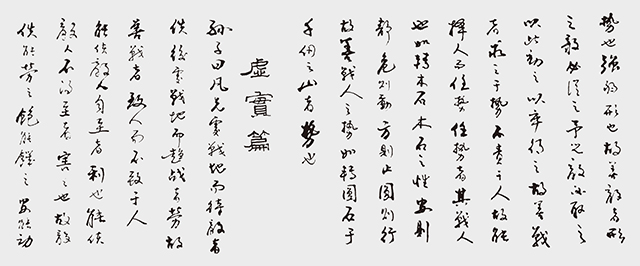 勢也強弱形也故善敵者形
之敵必從之予之敵必取之
以此動之以卒待之故善戰
者求之于勢不責于人故能
擇人而任勢任勢者其戰人
也如轉木石木石之性安則
靜危則動方則止圓則行
故善戰人之勢如轉圓石于
千仞之山者勢也
虛實篇
孫子曰凡先處戰地而待敵者
佚後處戰地而趨戰者勞故
善戰者致人而不致于人
能使敵人自至者利也能使
敵人不得至者害之也故敵
佚能勞之飽能饑之安能動